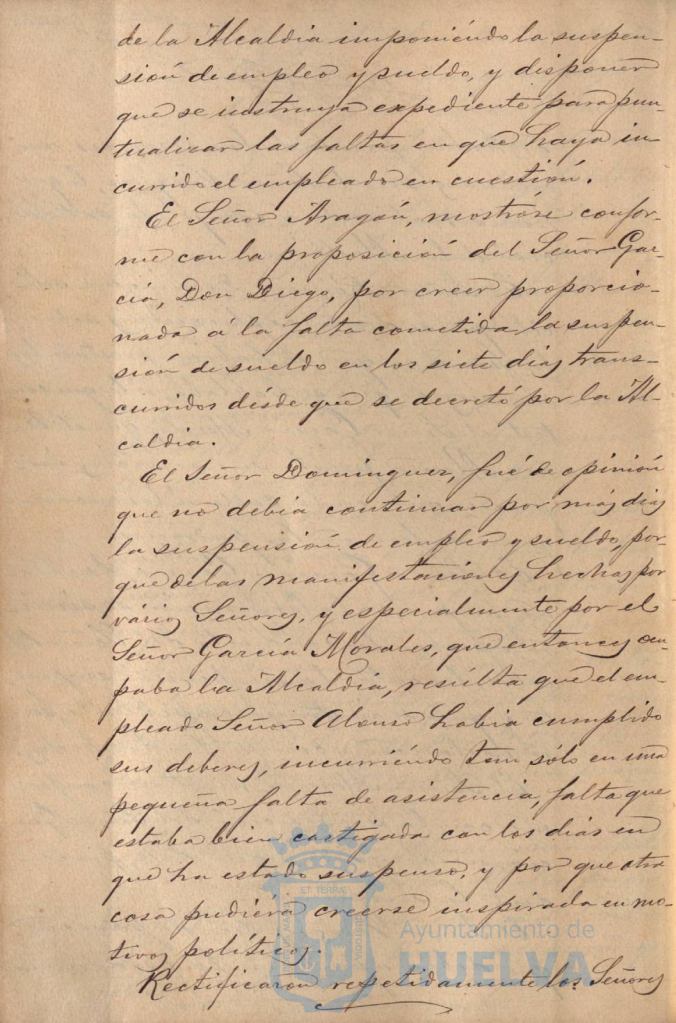 de la Alcaldia imponiéndo la suspen-
sión de empleo y sueldo, y disponer
que se instruya expediente para pun-
tualizar las faltas en que haya in-
currido el empleado en cuestión.
El Señor Aragón, mostróse confor-
me con la proposición del Señor Gar-
cia, Don Diego, por creer proporcio-
nada á la falta cometida la suspen-
sión de sueldo en los siete dias trans-
curridos désde que se decretó por la Al-
caldia.
El Señor Dominguez, fué de opinión
que no debia continuar por más dias
la suspensión de empleo y sueldo, por-
que de las manifestaciones hechas por
vários Señores, y especialmente por el
Señor García Morales, que entonces ocu-
paba la Alcaldía, resulta que el em-
pleado Señor Alonso habia cumplido
sus deberes, incurriéndo tan sólo en una
pequeña falta de asistencia, falta que
estaba bien castigada con los dias en
que ha estado suspenso, y por que otra
cosa pudiéra creerse inspirada en mo-
tivos políticos.
Rectificaron repetidamente los Señores
Ayuntamiento de
HUELVA